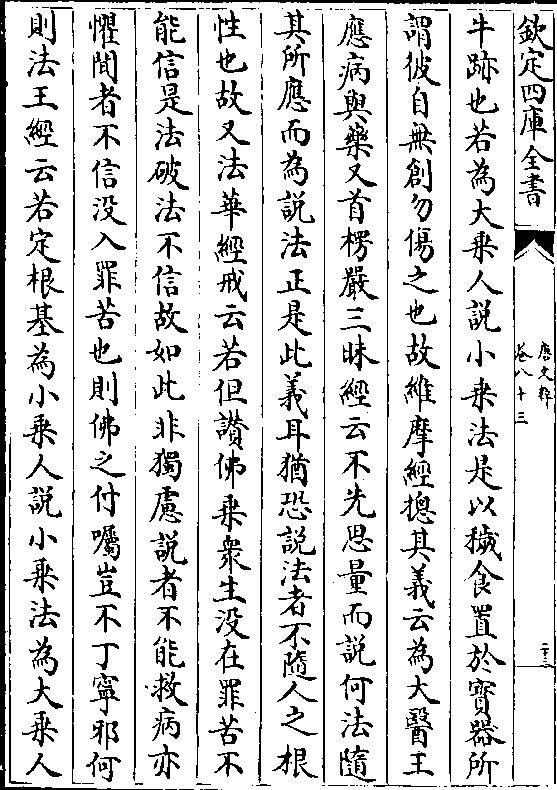 欽定四庫全書
唐文粹
卷八十三
二十三
牛跡也若為大乗人說小乗法是以穢食置於寳器所
謂彼自無創勿傷之也故維摩經摠其義云為大醫王
應病與藥又首楞嚴三昧經云不先思量而說何法隨
其所應而為說法正是此義耳猶恐説法者不隨人之根
性也故又法華經戒云若但讃佛乗衆生没在罪苦不
能信是法破法不信故如此非獨慮説者不能救病亦
懼聞者不信没入罪苦也則佛之付囑豈不丁寧邪何
則法王經云若定根基為小乗人說小乗法為大乗人